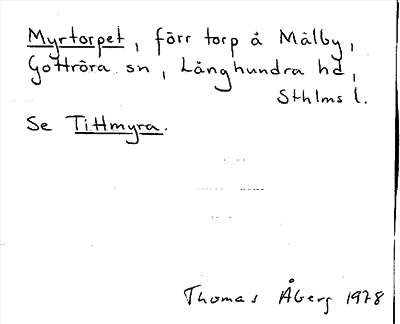 Myrtorpet, förr torp å Målby,
Gottröra sn, Långhundra hd,
Sthlms l.
Se Tittmyra.
Thomas Åberg 1978